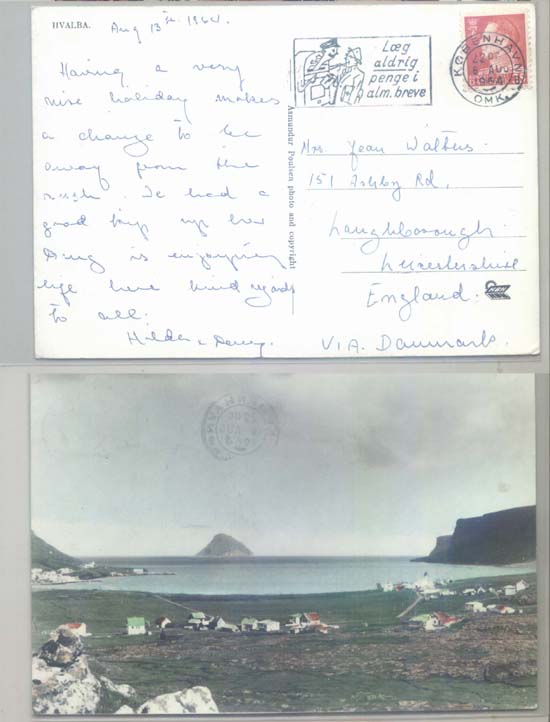 HVALBA.
Aug 13th. 1964.
Having a very
nice holiday makes
a change to be
away from the
rush. I've had a
good trip up here
Doug is enjoying
life here kind regards
to all.
Hilda &
Læg
aldrig
penge i
alm. breve
KØBENHAVN
AUG.
1964
OMK.
Asmundur Poulsen photo and copyright
Mrs. Jean Walters.
151 Ashby Rd,
Loughborough
Leicestershire
England.
VIA. Danmark.